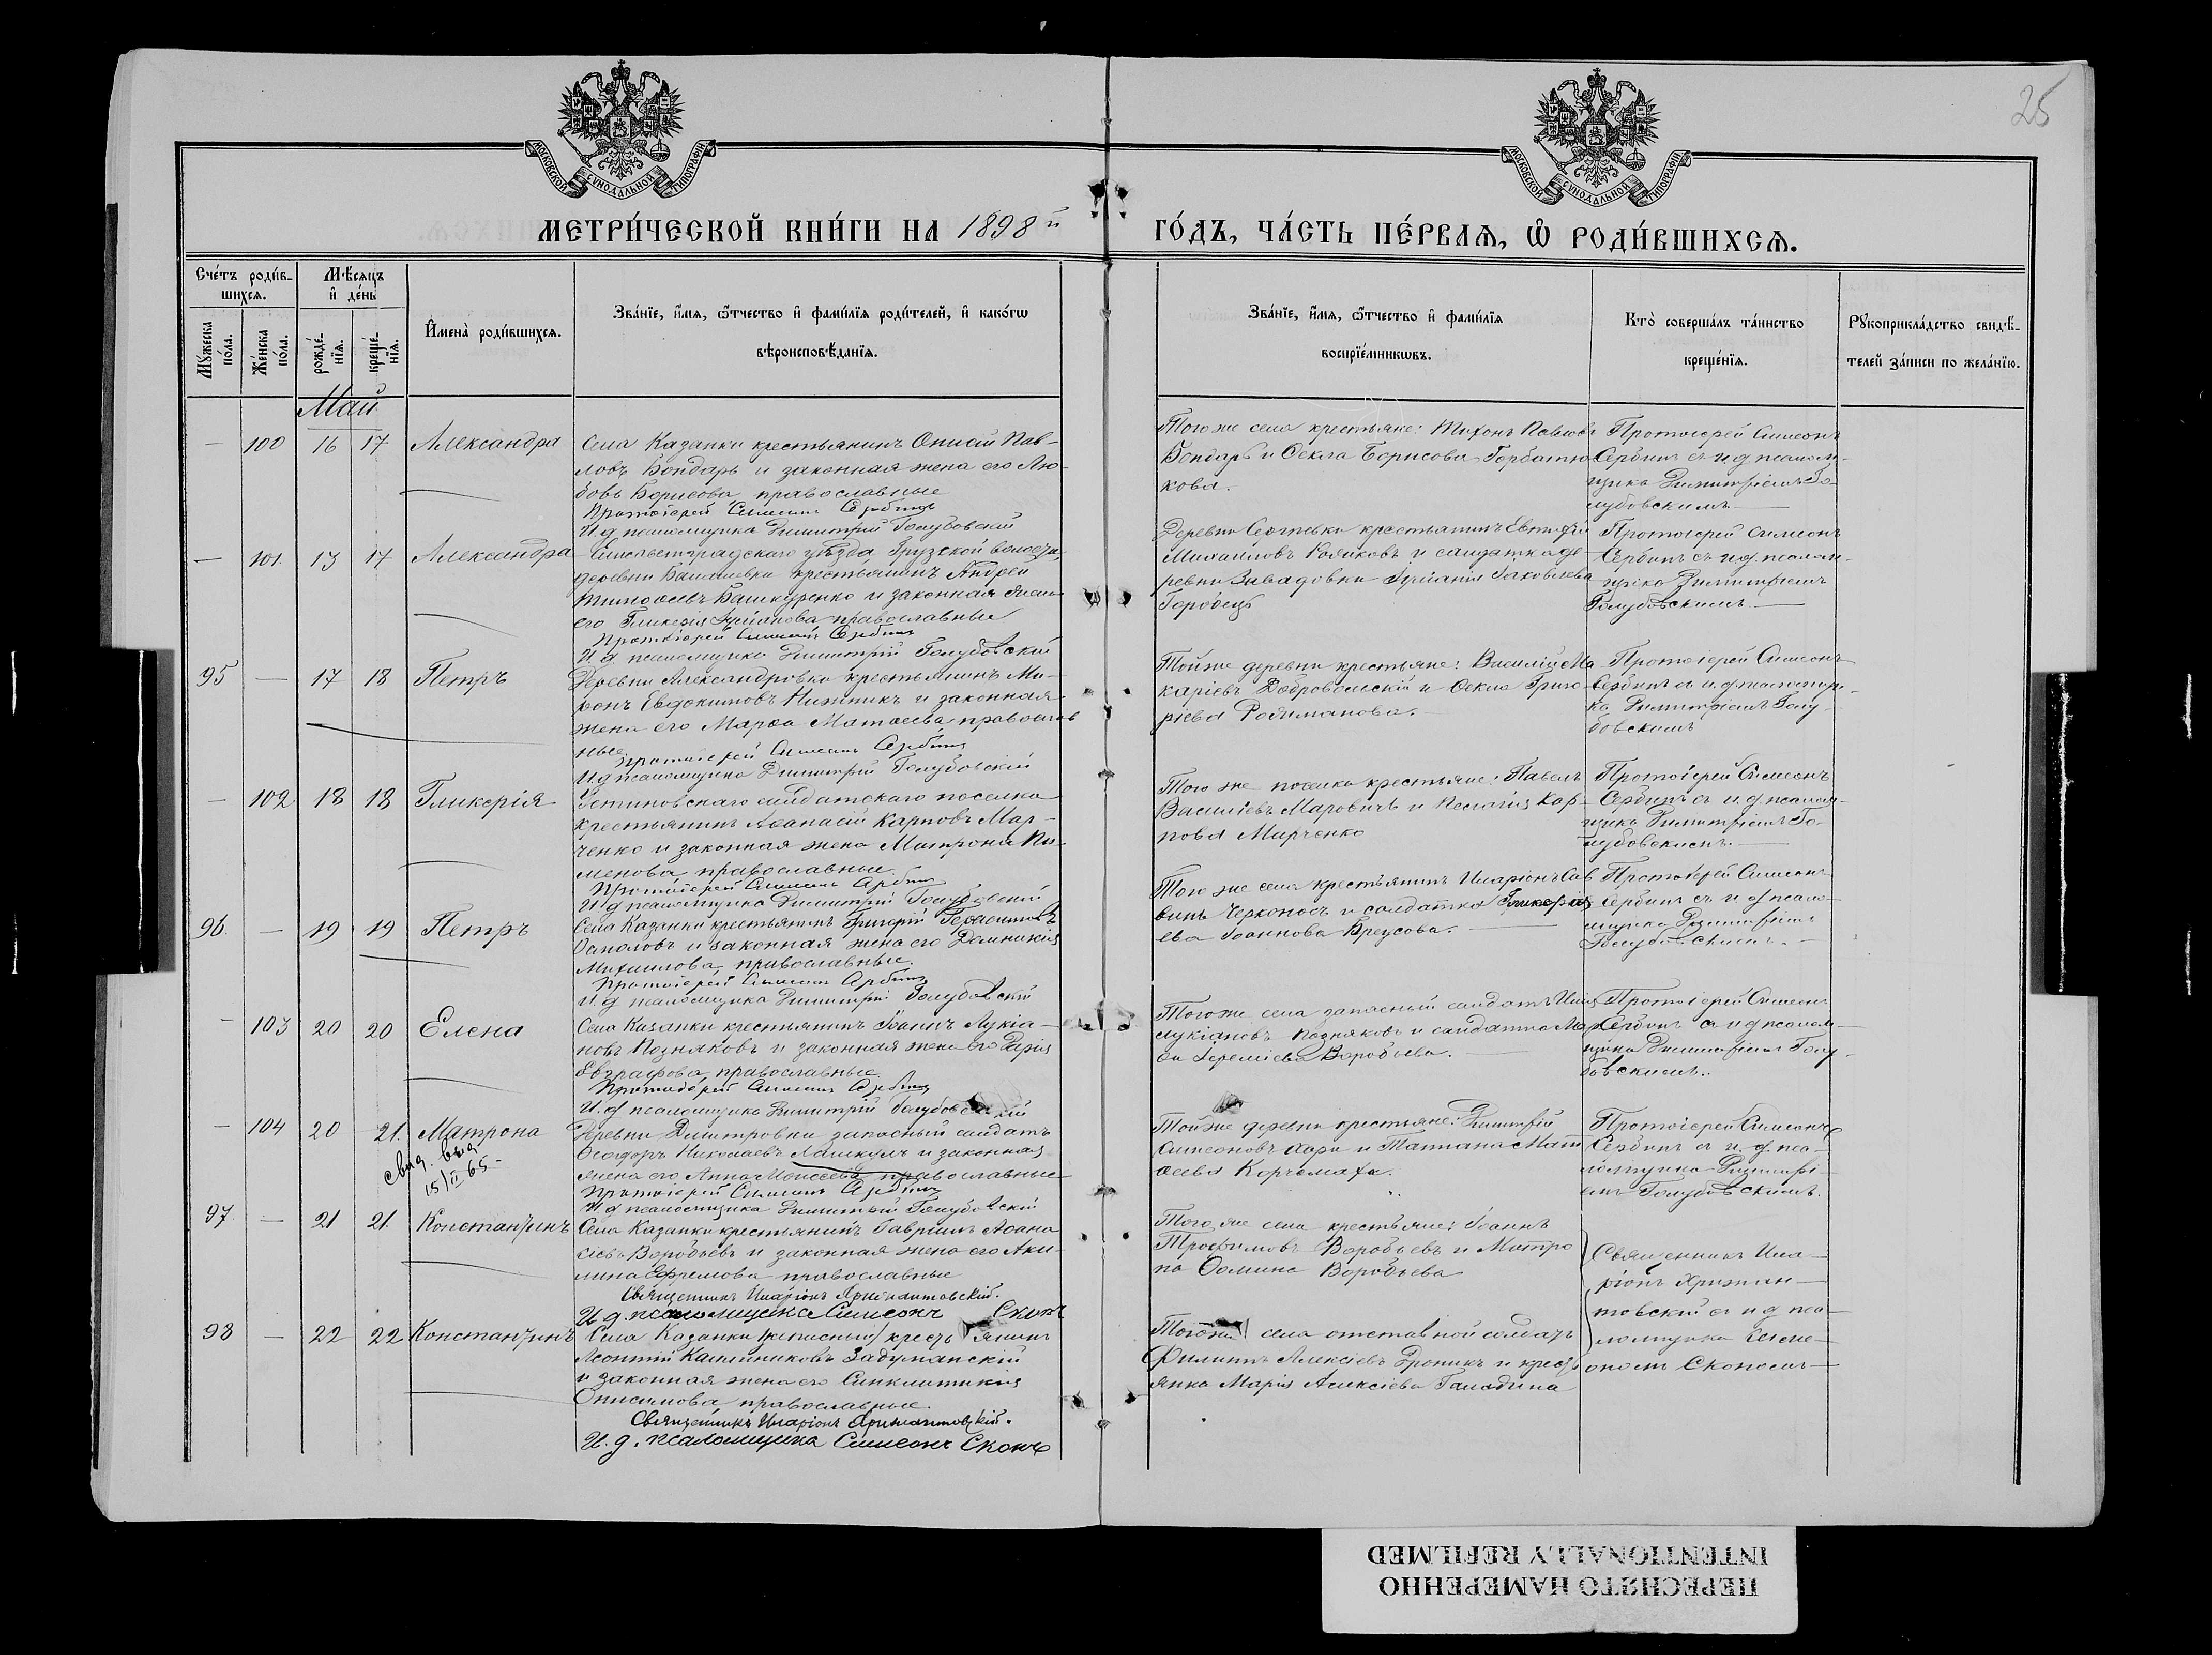 25
МОСКОВСКОЙ СУНОДАЛЬНОЙ ТИПОГРАФІИ
МОСКОВСКОЙ СУНОДАЛЬНОЙ ТИПОГРАФІИ
МЕТРИ́ЧЕСКОЙ КНИ́ГИ НА 1898й ГО́ДЪ, ЧА́СТЬ ПЕ́РВАѦ, Ѡ РОДИ́ВШИХСѦ.
Сче́тъ роди́в-
шихсѧ.
Мꙋжеска по́ла.
Же́нска по́ла.
Мѣ́сѧцъ
и де́нь
рожде́-
нїѧ.
креще́-
нїѧ.
Имена̀ роди́вшихсѧ.
Зва́нїе, и́мѧ, ѻ҆́тчество и фами́лїѧ роди́телей, и како́гѡ
вѣроисповѣ́данїѧ.
Зва́нїе, и́мѧ, ѻ҆́тчество и фами́лїѧ
воспрїе́мникѡвъ.
Кто̀ соверша́лъ та́инство
креще́нїѧ.
Рꙋкоприкла́дство свидѣ́-
телей за́писи по жела́нїю.
Май
— 100 16 17 Александра
Села Казанки крестьянинъ Онисій Пав-
ловъ Бондарь и законная жена его Лю-
бовь Борисова православные
Протоіерей Симеонъ Сербинъ
И д псаломщика Димитрій Голубовскій
Того же села крестьяне: Тихонъ Павловъ
Бондарь и Ѳекла Борисова Горбатю
кова.
Протоіерей Симеонъ
Сербинъ съ и д псалом-
щика Димитріемъ Го-
лубовскимъ
— 101. 13 17 Александра
Елисаветградскаго уѣзда, Грузской волости,
деревни крестьянинъ Андрей
Тимоѳеевъ Башкуренко и законная жена
его Гликерія православные
Протоіерей Симеонъ Сербинъ
И д псаломщика Димитрій Голубовскій
Деревни Сергѣевки крестьянинъ Евтихій
Михаиловъ и солдатка де-
ревни Завадовки Іуліанія
Городецъ
Протоіерей Симеонъ
Сербинъ съ и д. псалом-
щика Димитріемъ
Голубовскимъ.
95 — 17 18 Петръ
Деревни Александровки крестьянинъ Ми-
ронъ Евдокимовъ и законная
жена его Марѳа Матѳеева православ
ные
Протоіерей Симеонъ Сербинъ
И д псаломщика Димитрій Голубовскій
Той же деревни крестьяне: Василій Ма
каріевъ Добровольскій и Ѳекла Григо-
ріева Родиманова.
Протоіерей Симеонъ
Сербинъ съ и д псаломщи-
ка Димитріемъ Голу-
бовскимъ
— 102 18 18 Гликерія
солдатскаго поселка
крестьянинъ Аѳанасій Карповъ Мар-
ченко и законная жена Матрона Пи-
менова православные.
Протоіерей Симеонъ Сербинъ
И д псаломщика Димитрій Голубовскій
Того же поселка крестьяне: Павелъ
Василіевъ Маровичъ и Пелагія Кар-
пова Марченко
Протоіерей Симеонъ
Сербинъ съ и. д. псалом-
щика Димитріемъ Го-
лубовскимъ.
96. — 19 19 Петръ
Села Казанки крестьянинъ Григорій Герасимовъ
и законная жена его Домникія
Михаилова, православные.
Протоіерей Симеонъ Сербинъ
И. д псаломщика Димитрій Голубовскій
Того же села крестьянинъ Иларіонъ Сав
винъ Черконосъ и солдатка
Іоаннова Бреусова.
Протоіерей Симеонъ
Сербинъ съ и д псало-
мщика Димитріемъ
Голубовскимъ.
— 103 20 20 Елена
Села Казанки крестьянинъ Іоаннъ Лукіа-
новъ Позняковъ и законная жена его Дарія
Евграфова, православные.
Протоіерей Симеонъ Сербинъ
И. д псаломщика Димитрій Голубовскій
Того же села запасный солдатъ
Лукіановъ Позняковъ и солдатка Мар
Іереміева Воробьева.
Протоіерей Симеонъ
Сербинъ съ и д псалом-
щика Димитріемъ Голу-
бовскимъ.
— 104 20 21. Матрона
свид. выд
15/II 65-
Деревни Димитровки запасный солдатъ
Ѳеодоръ Николаевъ и законная
жена его Анна Моисеева православные
Протоіерей Симеонъ Сербинъ
И д псаломщика Димитрій Голубовскій
Той же деревни крестьяне: Димитрій
Симеоновъ и Татіана Мат
ѳеева Корчемаха.
Протоіерей Симеонъ
Сербинъ съ и. д. пса-
ломщика Димитрі-
емъ Голубовскимъ.
97 — 21 21 Константинъ
Села Казанки крестьянинъ Гавріилъ Аѳана
сіевъ Воробьевъ и законная жена его Аки-
лина Ефремова православные
Священникъ Иларіонъ
И д. псаломщика Симеонъ Сконъ
Того же села крестьяне: Іоаннъ
Трофимовъ Воробьевъ и Матро
на Ѳомина Воробьева
98 — 22 22 Константинъ
Села Казанки запасный крестьянинъ
Леонтій Каллиниковъ Задуманскій
и законная жена его Синклитикія
Онисимова православные.
Священникъ Иларіонъ
И. д. псаломщика Симеонъ Сконъ
Того же села отставной солдатъ
Филиппъ Алексіевъ Дроникъ и кресть
янка Марія Алексіева
Священникъ Ила-
ріонъ
съ и д пса-
ломщика Симе-
ономъ Скономъ
ПЕРЕСНЯТО НАМЕРЕННО
INTENTIONALLY REFILMED